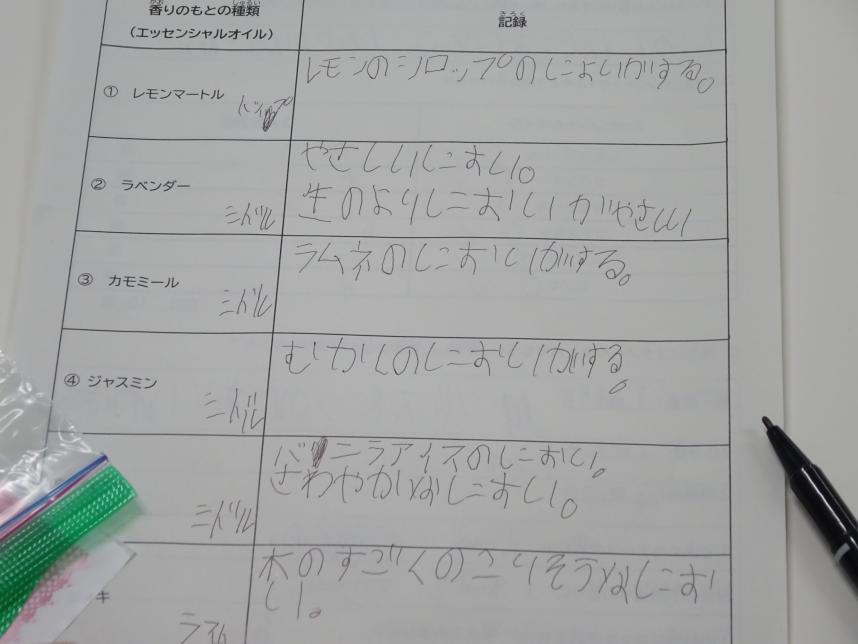 香りのもとの種類
（エッセンシャルオイル）
記録
① レモンマートル
トップ
レモンのシロップのにおいがする。
② ラベンダー
ミドル
やさしいにおい。
生のよりにおいがやさしい
③ カモミール
ミドル
ラムネのにおいがする。
④ ジャスミン
ミドル
むかしのにおいがする。
ミドル
バニラアイスのにおい。
さわやかなにおい。
キ
木のすごくのこりそうなにお
い。